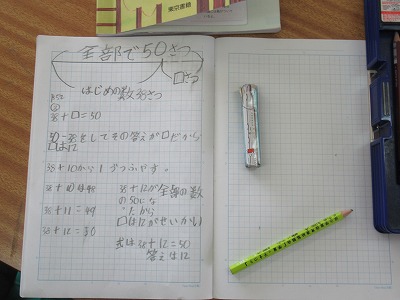 東京書籍
全部で50さつ
□さつ
はじめの数38さつ
②
38+□=50
50-38をしてその答えが□だから
□は12
38+10から1ずつふやす。
38+10=48
38+11=49
38+12=50
38+12が全部の数
の50にな
ったから
□は12がせいかい
式は38+12=50
答えは12